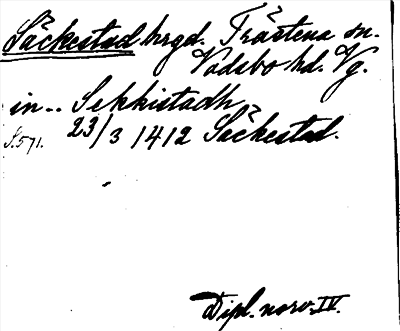 Säckestad hrgd. Trästena sn.
Vadsbo hd. Vg.
in .. Sekkistadh
S. 571. 23/3 1412 Säckestad.
Dipl. norv. IV.